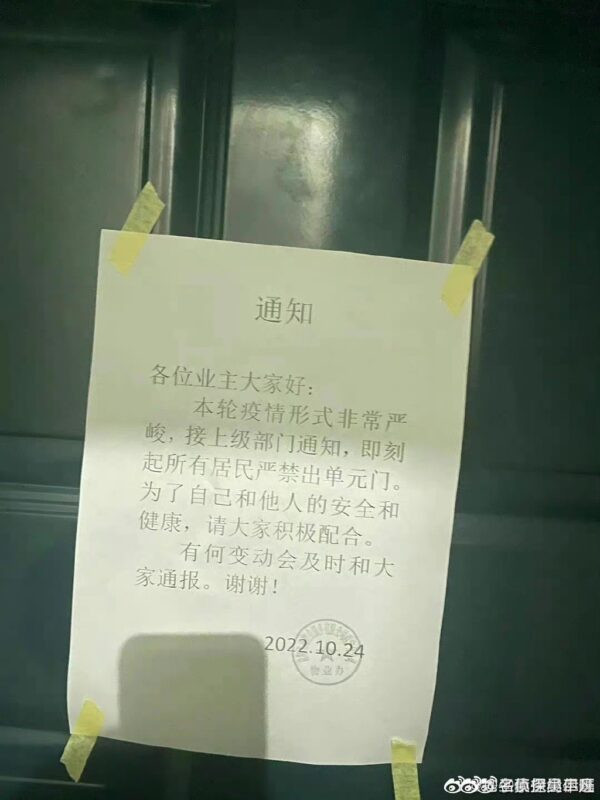 通知
各位业主大家好：
本轮疫情形式非常严
峻，接上级部门通知，即刻
起所有居民严禁出单元门。
为了自己和他人的安全和
健康，请大家积极配合。
有何变动会及时和大
家通报。谢谢！
2022.10.24
物业办